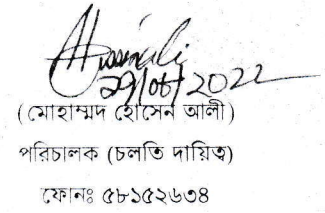 ২৯/০৮/2022
(মোহাম্মদ হোসেন আলী)
পরিচালক (চলতি দায়িত্ব)
ফোনঃ ৫৮১৫২৬৩৪